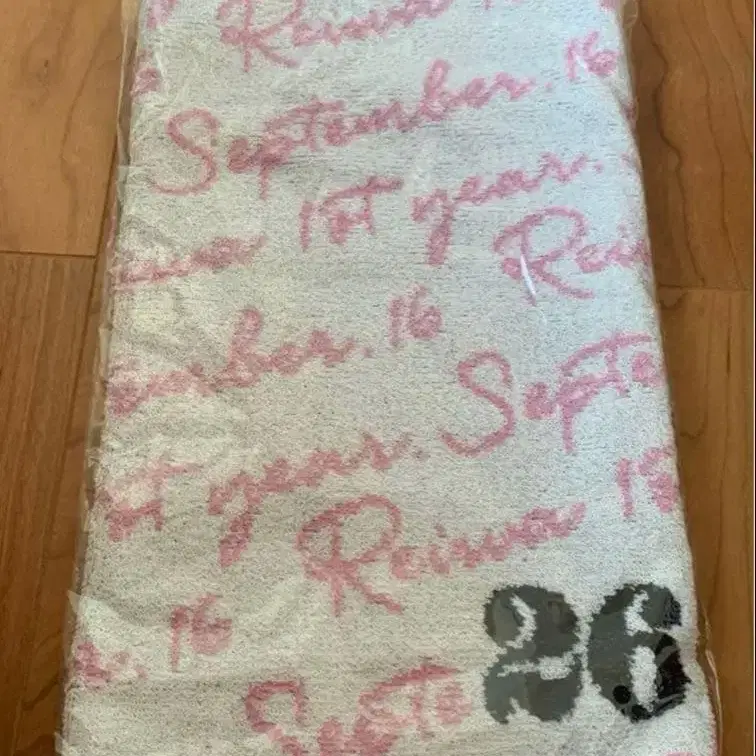 Reiwa 1
September. 16
1st year.
Reiw
ember. 16
Septe
st year.
Reiwa 1s
r. 16
Septe
26